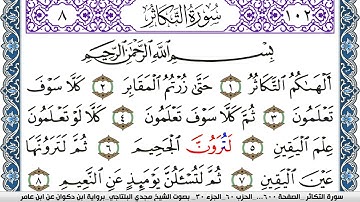 ١٠٢ سُورَةُ التَّكَاثُرِ ٨
بِسْمِ اللَّهِ الرَّحْمَٰنِ الرَّحِيمِ
أَلْهَىٰكُمُ التَّكَاثُرُ ١ حَتَّىٰ زُرْتُمُ الْمَقَابِرَ ٢ كَلَّا سَوْفَ
تَعْلَمُونَ ٣ ثُمَّ كَلَّا سَوْفَ تَعْلَمُونَ ٤ كَلَّا لَوْ تَعْلَمُونَ
عِلْمَ الْيَقِينِ ٥ لَتُرَوُنَّ الْجَحِيمَ ٦ ثُمَّ لَتَرَوُنَّهَا
عَيْنَ الْيَقِينِ ٧ ثُمَّ لَتُسْـَٔلُنَّ يَوْمَئِذٍ عَنِ النَّعِيمِ ٨
سورة التكاثر_ الصفحة ٦٠٠... الحزب ٦٠_ الجزء ٣٠_ بصوت الشيخ مجدي البلتاجي_ برواية ابن ذكوان عن ابن عامر